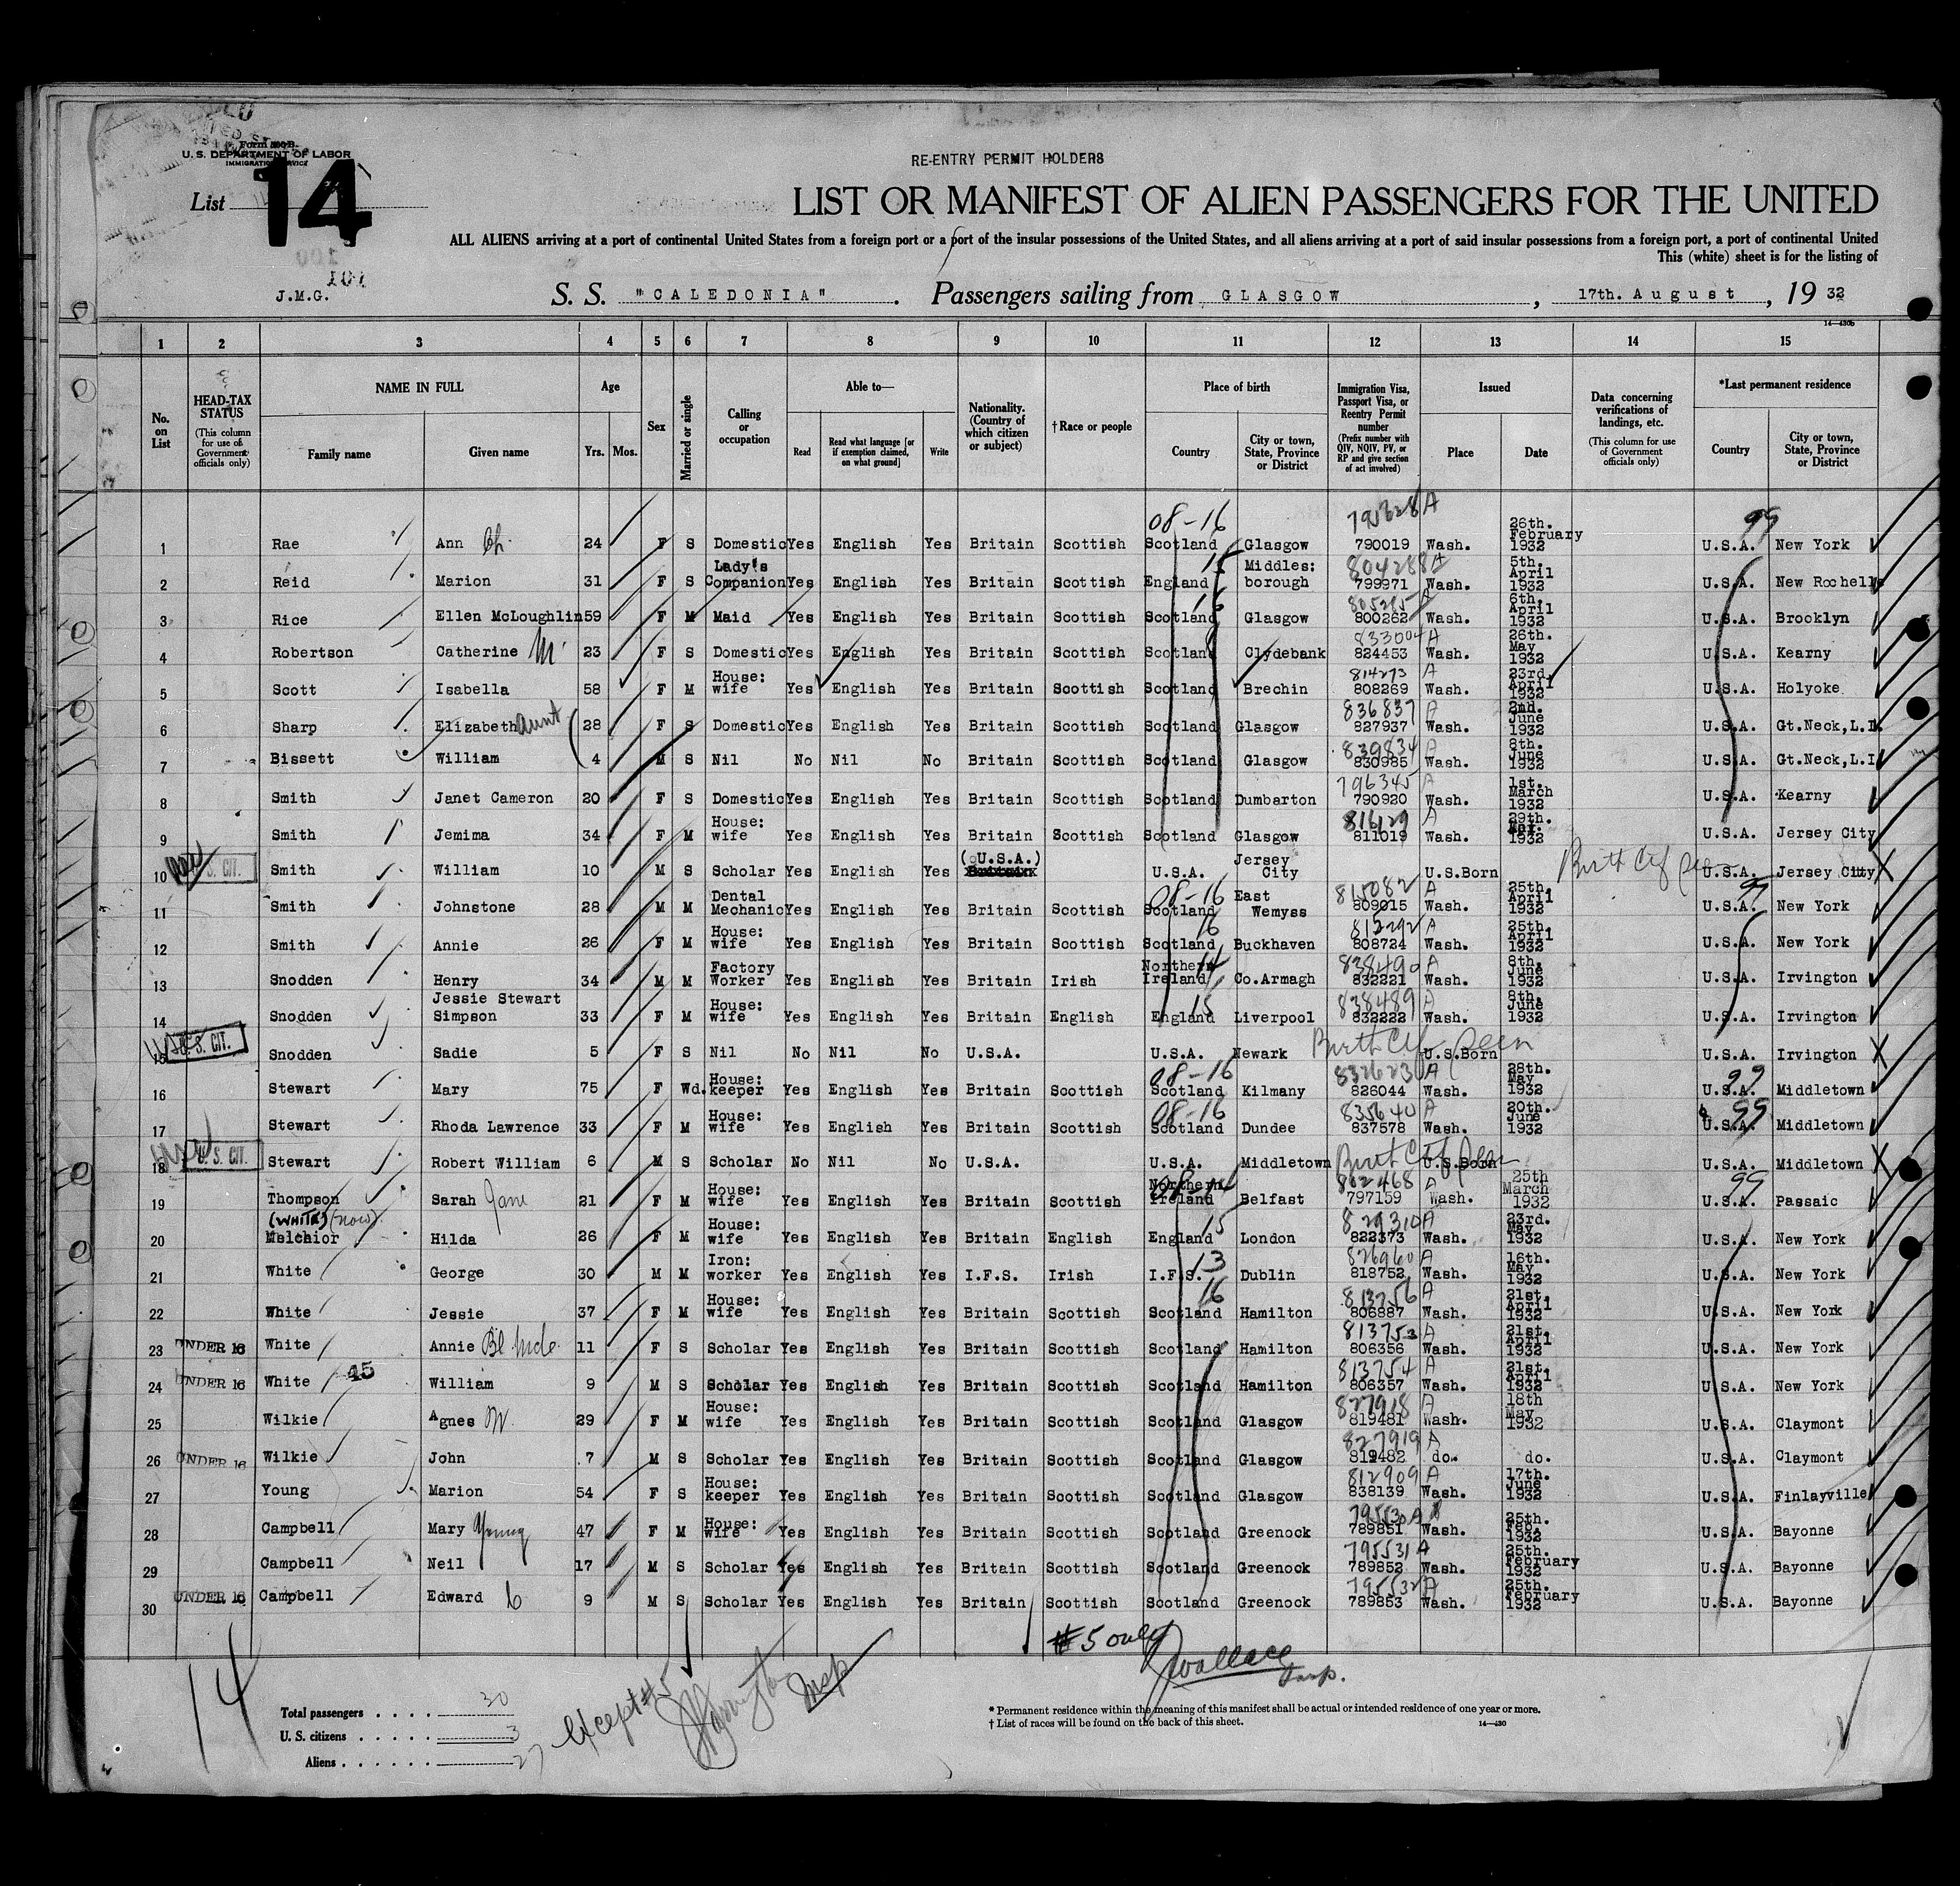 Form 500B
U. S. DEPARTMENT OF LABOR
IMMIGRATION SERVICE
List 14
RE-ENTRY PERMIT HOLDERS
LIST OR MANIFEST OF ALIEN PASSENGERS FOR THE UNITED
ALL ALIENS arriving at a port of continental United States from a foreign port or a port of the insular possessions of the United States, and all aliens arriving at a port of said insular possessions from a foreign port, a port of continental United
This (white) sheet is for the listing of
107
J.M.G.
S. S. "CALEDONIA". Passengers sailing from GLASGOW, 17th. August, 1932
14—430b
1 2 3 4 5 6 7 8 9 10 11 12 13 14 15
No. on List
HEAD-TAX STATUS (This column for use of Government officials only)
NAME IN FULL Family name Given name
Age Yrs. Mos.
Sex
Married or single
Calling or occupation
Able to— Read Read what language [or if exemption claimed, on what ground] Write
Nationality. (Country of which citizen or subject)
†Race or people
Place of birth Country City or town, State, Province or District
Immigration Visa, Passport Visa, or Reentry Permit number (Prefix number with QIV, NQIV, PV, or RP and give section of act involved)
Issued Place Date
Data concerning verifications of landings, etc. (This column for use of Government officials only)
*Last permanent residence Country City or town, State, Province or District
1 Rae Ann 24 F S Domestic Yes English Yes Britain Scottish 08-16 Scotland Glasgow 790019 Wash. 26th. February 1932 99 U.S.A. New York
2 Reid Marion 31 F S Lady's Companion Yes English Yes Britain Scottish 15 England Middles: borough 804288A 799971 Wash. 5th. April 1932 U.S.A. New Rochelle
3 Rice Ellen McLoughlin 59 F M Maid Yes English Yes Britain Scottish 16 Scotland Glasgow 800262 Wash. 6th. April 1932 U.S.A. Brooklyn
4 Robertson Catherine M. 23 F S Domestic Yes English Yes Britain Scottish Scotland Clydebank 833004A 824453 Wash. 26th. May 1932 U.S.A. Kearny
5 Scott Isabella 58 F M House: wife Yes English Yes Britain Scottish Scotland Brechin 814273 A 808269 Wash. 23rd. April 1932 U.S.A. Holyoke
6 Sharp Elizabeth aunt 28 F S Domestic Yes English Yes Britain Scottish Scotland Glasgow 836837 A 827937 Wash. 2nd. June 1932 U.S.A. Gt.Neck,L.I.
7 Bissett William 4 M S Nil No Nil No Britain Scottish Scotland Glasgow 839834 A 830985 Wash. 8th. June 1932 U.S.A. Gt.Neck,L.I
8 Smith Janet Cameron 20 F S Domestic Yes English Yes Britain Scottish Scotland Dumbarton 796345 A 790920 Wash. 1st. March 1932 U.S.A. Kearny
9 Smith Jemima 34 F M House: wife Yes English Yes Britain Scottish Scotland Glasgow 816129 A 811019 Wash. 29th. 1932 U.S.A. Jersey City
10 U.S. CIT. Smith William 10 M S Scholar Yes English Yes (U.S.A.) U.S.A. Jersey City U.S.Born Birth Ctf seen U.S.A. Jersey City
11 Smith Johnstone 28 M M Dental Mechanic Yes English Yes Britain Scottish 08-16 Scotland East Wemyss 815082 A 809015 Wash. 25th. April 1932 99 U.S.A. New York
12 Smith Annie 26 F M House: wife Yes English Yes Britain Scottish 16 Scotland Buckhaven 815292 A 808724 Wash. 25th. April 1932 U.S.A. New York
13 Snodden Henry 34 M M Factory Worker Yes English Yes Britain Irish 14 Northern Ireland Co.Armagh 838490 A 832221 Wash. 8th. June 1932 U.S.A. Irvington
14 Snodden Jessie Stewart Simpson 33 F M House: wife Yes English Yes Britain English 15 England Liverpool 838489 A 832222 Wash. 8th. June 1932 U.S.A. Irvington
15 U.S. CIT. Snodden Sadie 5 F S Nil No Nil No U.S.A. U.S.A. Newark Birth Ctf seen U.S.Born U.S.A. Irvington
16 Stewart Mary 75 F Wd. House: keeper Yes English Yes Britain Scottish 08-16 Scotland Kilmany 832623 A 826044 Wash. 28th. May 1932 99 U.S.A. Middletown
17 Stewart Rhoda Lawrence 33 F M House: wife Yes English Yes Britain Scottish 08-16 Scotland Dundee 835640 A 837578 Wash. 20th. June 1932 99 U.S.A. Middletown
18 U.S. CIT. Stewart Robert William 6 M S Scholar No Nil No U.S.A. U.S.A. Middletown Birth Ctf seen U.S.Born U.S.A. Middletown
19 Thompson Sarah Jane 21 F M House: wife Yes English Yes Britain Scottish 08-14 Northern Ireland Belfast 802468 A 797159 Wash. 25th March 1932 99 U.S.A. Passaic
20 (WHITE) (now) Melchior Hilda 26 F M House: wife Yes English Yes Britain English 15 England London 829310 A 822373 Wash. 23rd. May 1932 U.S.A. New York
21 White George 30 M M Iron: worker Yes English Yes I.F.S. Irish 13 I.F.S. Dublin 826960 A 818752 Wash. 16th. May 1932 U.S.A. New York
22 White Jessie 37 F M House: wife Yes English Yes Britain Scottish 16 Scotland Hamilton 813756 A 806887 Wash. 21st. April 1932 U.S.A. New York
23 UNDER 16 White Annie 11 F S Scholar Yes English Yes Britain Scottish Scotland Hamilton 813753 A 806356 Wash. 21st. April 1932 U.S.A. New York
24 UNDER 16 White 45 William 9 M S Scholar Yes English Yes Britain Scottish Scotland Hamilton 813754 A 806357 Wash. 21st. April 1932 U.S.A. New York
25 Wilkie Agnes W. 29 F M House: wife Yes English Yes Britain Scottish Scotland Glasgow 827918 A 819481 Wash. 18th May 1932 U.S.A. Claymont
26 UNDER 16 Wilkie John 7 M S Scholar Yes English Yes Britain Scottish Scotland Glasgow 827919 A 819482 do. do. U.S.A. Claymont
27 Young Marion 54 F S House: keeper Yes English Yes Britain Scottish Scotland Glasgow 812909 A 838139 Wash. 17th. June 1932 U.S.A. Finlayville
28 Campbell Mary Young 47 F M House: wife Yes English Yes Britain Scottish Scotland Greenock 795530 A 789851 Wash. 25th. Feb. 1932 U.S.A. Bayonne
29 Campbell Neil 17 M S Scholar Yes English Yes Britain Scottish Scotland Greenock 795531 A 789852 Wash. 25th. February 1932 U.S.A. Bayonne
30 UNDER 16 Campbell Edward 9 M S Scholar Yes English Yes Britain Scottish Scotland Greenock 795532 A 789853 Wash. 25th. February 1932 U.S.A. Bayonne
#5 only
Wallace Insp.
14
Except #5
Insp
Total passengers 30
U. S. citizens 3
Aliens 27
* Permanent residence within the meaning of this manifest shall be actual or intended residence of one year or more.
† List of races will be found on the back of this sheet. 14—430